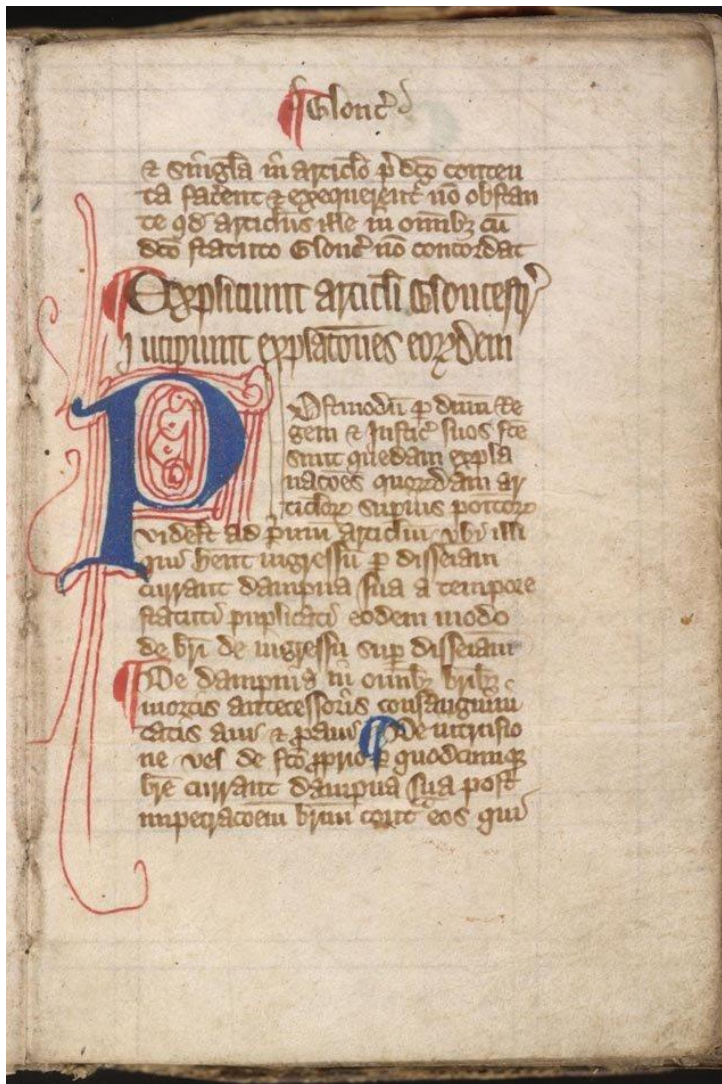 Glouc̄
⁊ singl̃a in articl̃o p̱dc̄o conten
ta facẽnt ⁊ exequerẽnt᷑ nō obstan
te qd̃ articl̃us ille in om̃ib⁊ cū
dc̄o statuto Glouc̄ nō concordat
Expliciunt articl̃i Gloucestr̃
Incipiunt explac̃ones eoꝝdem
Postmodū ꝑ dn̄m Re
gem ⁊ Justic̄ suos fc̄e
sunt quedam expla
nac̃ones quorꝺam ar
ticl̃oꝝ supius poĩtoꝝ
videlt᷑ ad p̃mum articl̃m vbi illi
qui hẽnt ingressū ꝑ disseĩam
currant dampna sua a tempore
statuti puplicati eodem modo
de br̃i de ingressu suꝑ disseĩam
De dampnis in om̃ib⁊ br̃ib⁊
mortis antecessoris consanguini
tatis aui ⁊ ꝓaui De intrusio
ne vel de fc̄o ꝓprio ꝑ quodcumqꝫ
br̃e currant dampna sua post
impetrac̃oem br̃ium cont̃ eos qui